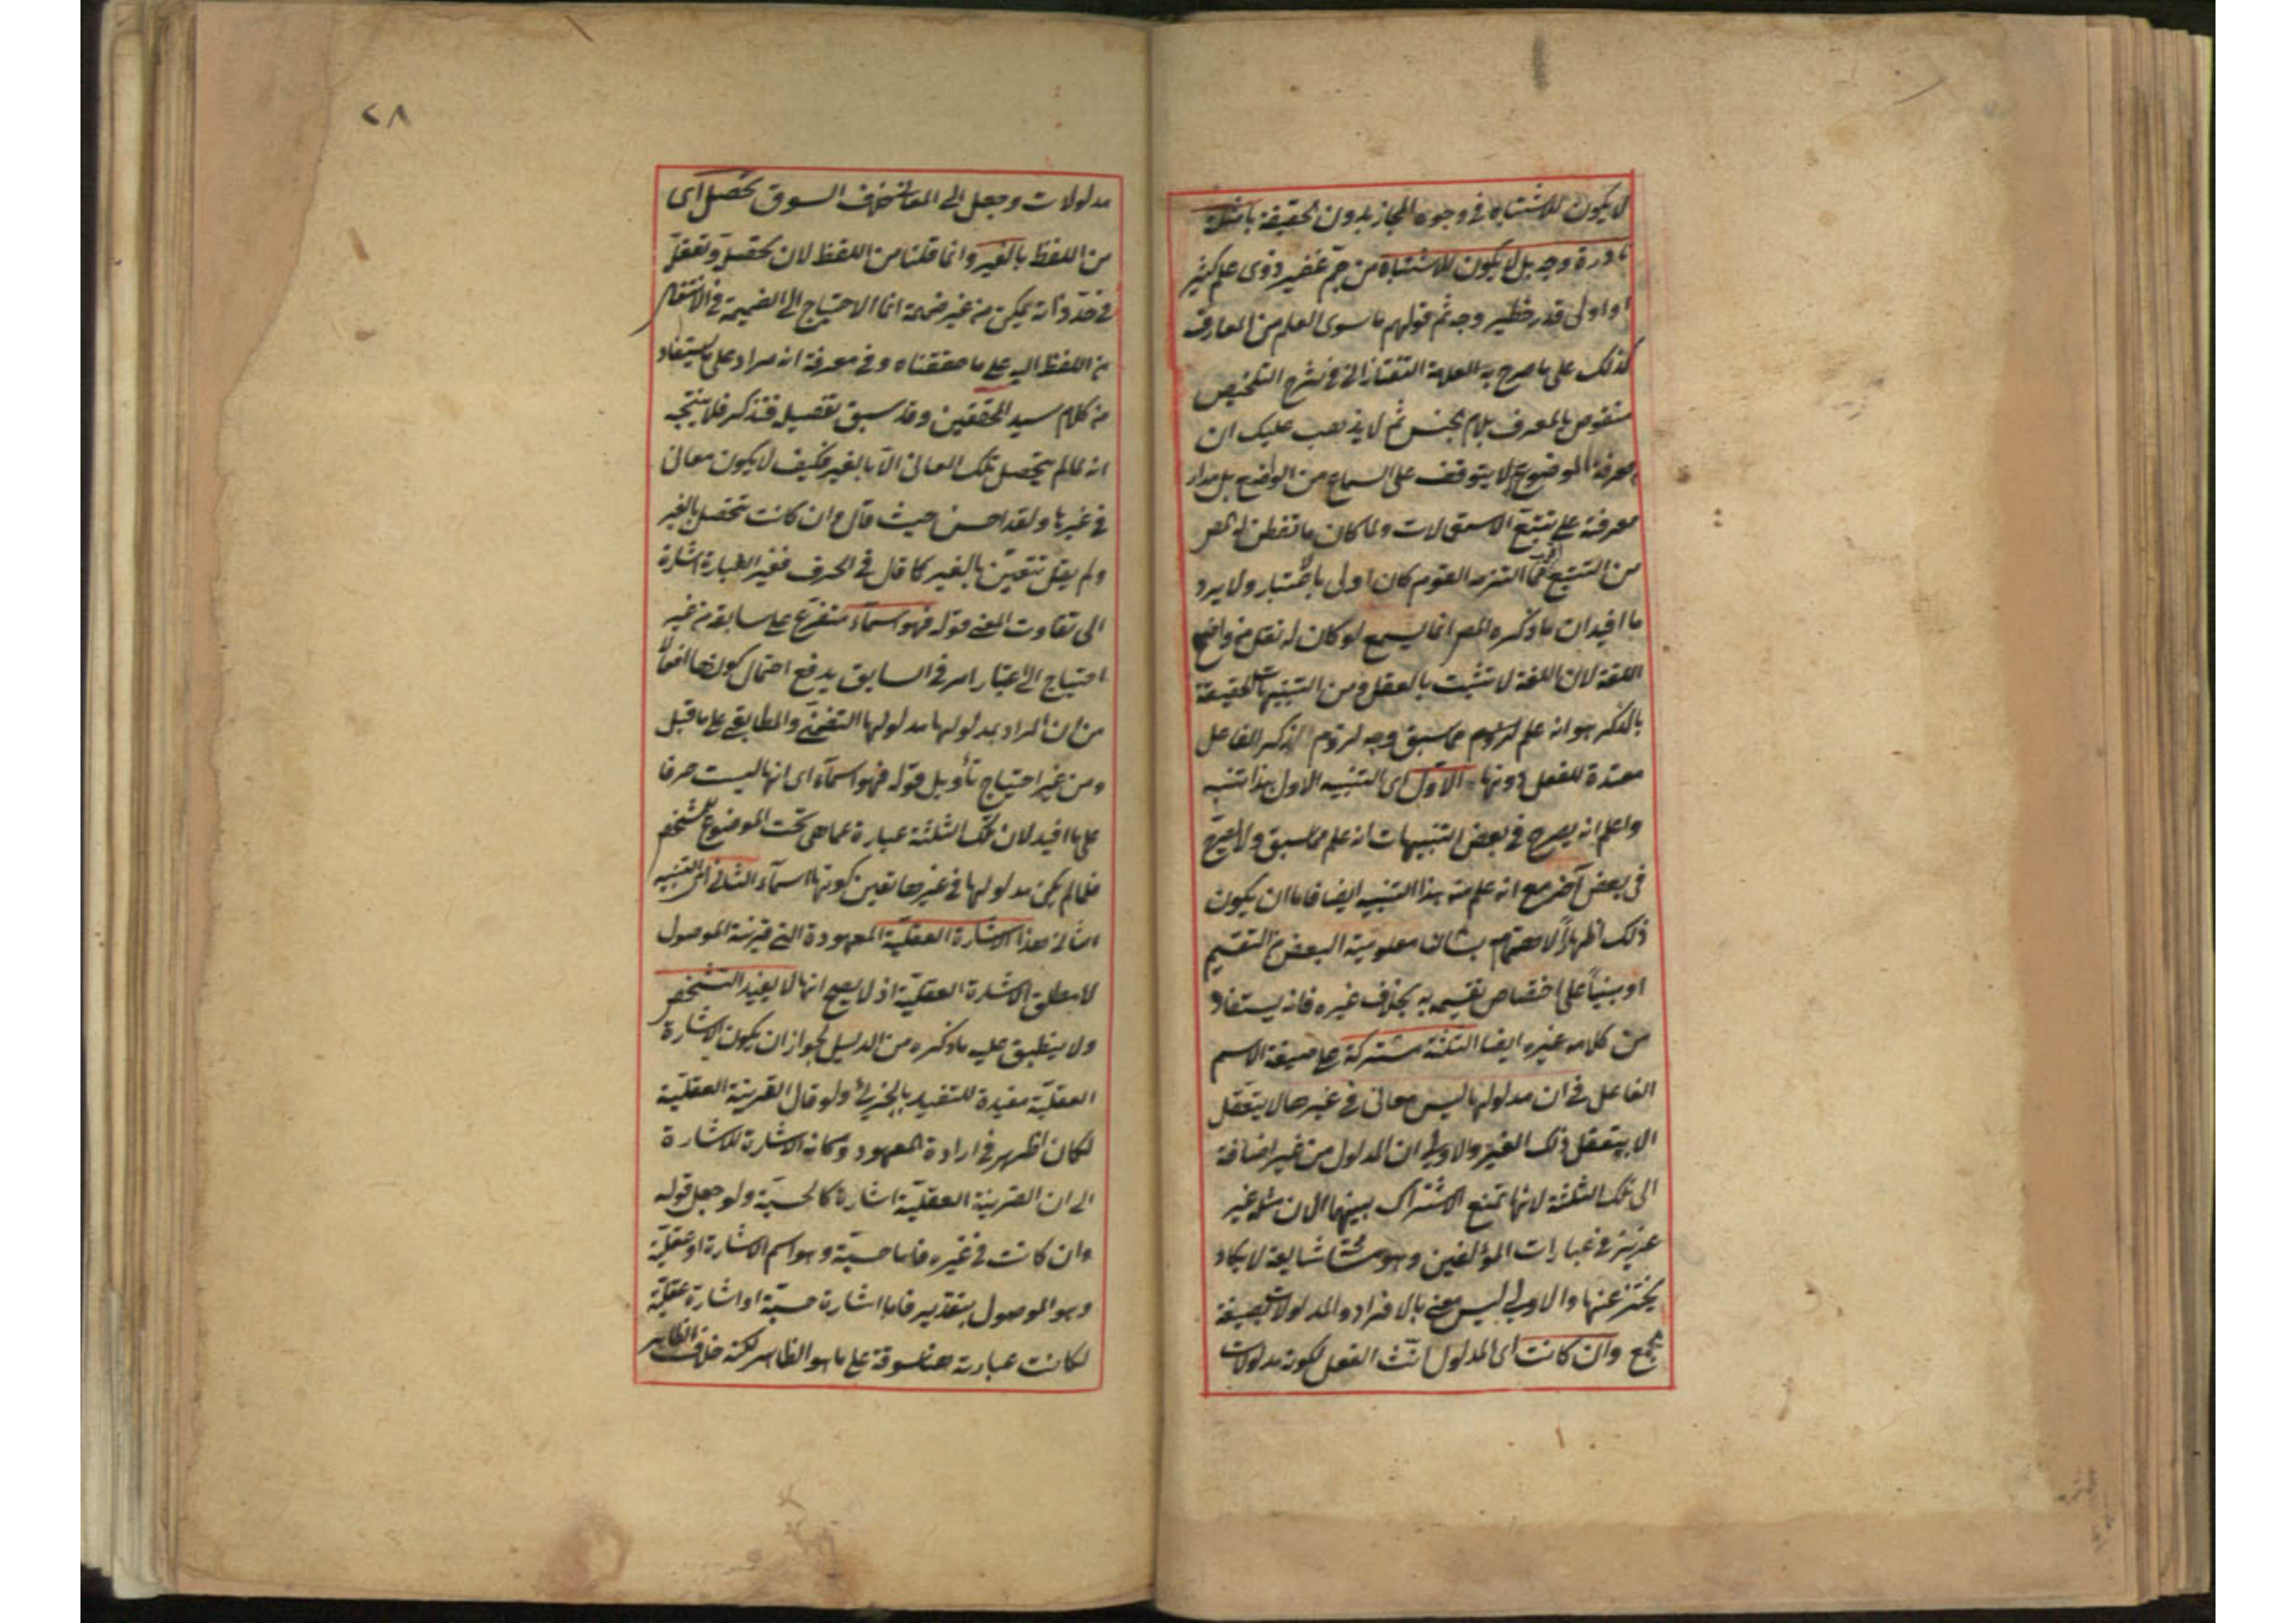 لا يكون للاشتباه في وجوه المجاز بدون الحقيقة بامثلة
نادرة وجه بل لا يكون للاشتباه من جم غفير ذوى علم كثير
او اولى قدر خطير وجه ثم قولهم ما سوى العلم من المعارف
كذلك على ما صرح به العلامة التفتازانى في شرح التلخيص
منقوض بالمعرف بلام الجنس ثم لا يذهب عليك ان
معرفة الموضوع له لا يتوقف على السماع من الواضع بل مدار
معرفته على تتبع الاستعمالات ولما كان ما تفطن له المص
من التتبع اقرب مما التزمه القوم كان اولى بالاعتبار ولا يرد
ما افيد ان ما ذكره المص انما يسمع لو كان له نقل من واضع
اللغة لان اللغة لا تثبت بالعقل ومن التنبيهات الحقيقة
بالذكر هو انه علم لزوم مما سبق وجه لزوم ذكر الفاعل
معتدة للفعل دونها الاول اى التنبيه الاول هذا تنبيه
واعلم انه يصرح في بعض التنبيهات انه علم مما سبق ولا يصرح
في بعض آخر مع انه علم منه هذا التنبيه ايضا فاما ان يكون
ذلك اظهارا لاهتمام بشان معلومية البعض من التقسيم
او مبنيا على اختصاص تقسيمه به بخلاف غيره فانه يستفاد
من كلام غيره ايضا الثلثة مشتركة على صيغة الاسم
الفاعل في ان مدلولها ليس معانى في غيرها لا يتعقل
الا بتعقل ذلك الغير والاولى ان المدلول من غير اضافة
الى تلك الثلثة لانها تمنع الاشتراك بينها الا ان مثله غير
عزيز في عبارات المؤلفين وهو مسامحة شايعة لا يكاد
يحترز عنها والاولى ليس معنى بالافراد والمدلولات بصيغة
الجمع وان كانت اى المدلول انث الفعل لكونه مدلولات
٢٨
مدلولات وجعل الى المعانى خلاف السوق تحصل اى
من اللفظ بالغير وانما قلنا من اللفظ لان تحصل وتعقل
في حد ذاته يمكن من غير ضميمة انما الاحتياج الى الضميمة في الانتقال
من اللفظ اليه على ما حققناه وفي معرفة انه مراد على ما يستفاد
من كلام سيد المحققين وقد سبق تفصيل فتذكر فلا يتجه
انه لما لم يتحصل تلك المعانى الا بالغير فكيف لا يكون معانى
في غيرها ولقد احسن حيث قال وان كانت تتحصل بالغير
ولم يقل تتعين بالغير كما قال في الحرف ففي العبارة اشارة
الى تفاوت المعنى قوله فهو اسماء متفرع على سابقه من غير
احتياج الى اعتبار امر في السابق يدفع احتمال كونها افعالا
من ان المراد بمدلولها مدلولها التضمنى والمطابقى على ما قيل
ومن غير احتياج تأويل قوله فهو اسماء اى انها ليست حرفا
على ما افيد لان تلك الثلثة عبارة عما هى تحت الموضوع للمشخص
فلما لم يكن مدلولها في غيرها تعين كونها اسماء الثانى اى التنبيه
الثانى هذا الاشارة العقلية المعهودة التى قرينة الموصول
لا مطلق الاشارة العقلية اذ لا يصح انها لا يفيد التشخص
ولا ينطبق عليه ما ذكره من الدليل لجواز ان يكون الاشارة
العقلية مفيدة للتقييد بالجزئى ولو قال القرينة العقلية
لكان اظهر في ارادة المعهود وكانه الاشارة للاشارة
الى ان القرينة العقلية اشارة كالحسية ولو جعل قوله
وان كانت في غيره فاما حسية وهو اسم الاشارة او عقلية
وهو الموصول بتقدير فاما اشارة حسية او اشارة عقلية
لكانت عبارته هنا مسوقة على ما هو الظاهر لكنه خلاف الظاهر